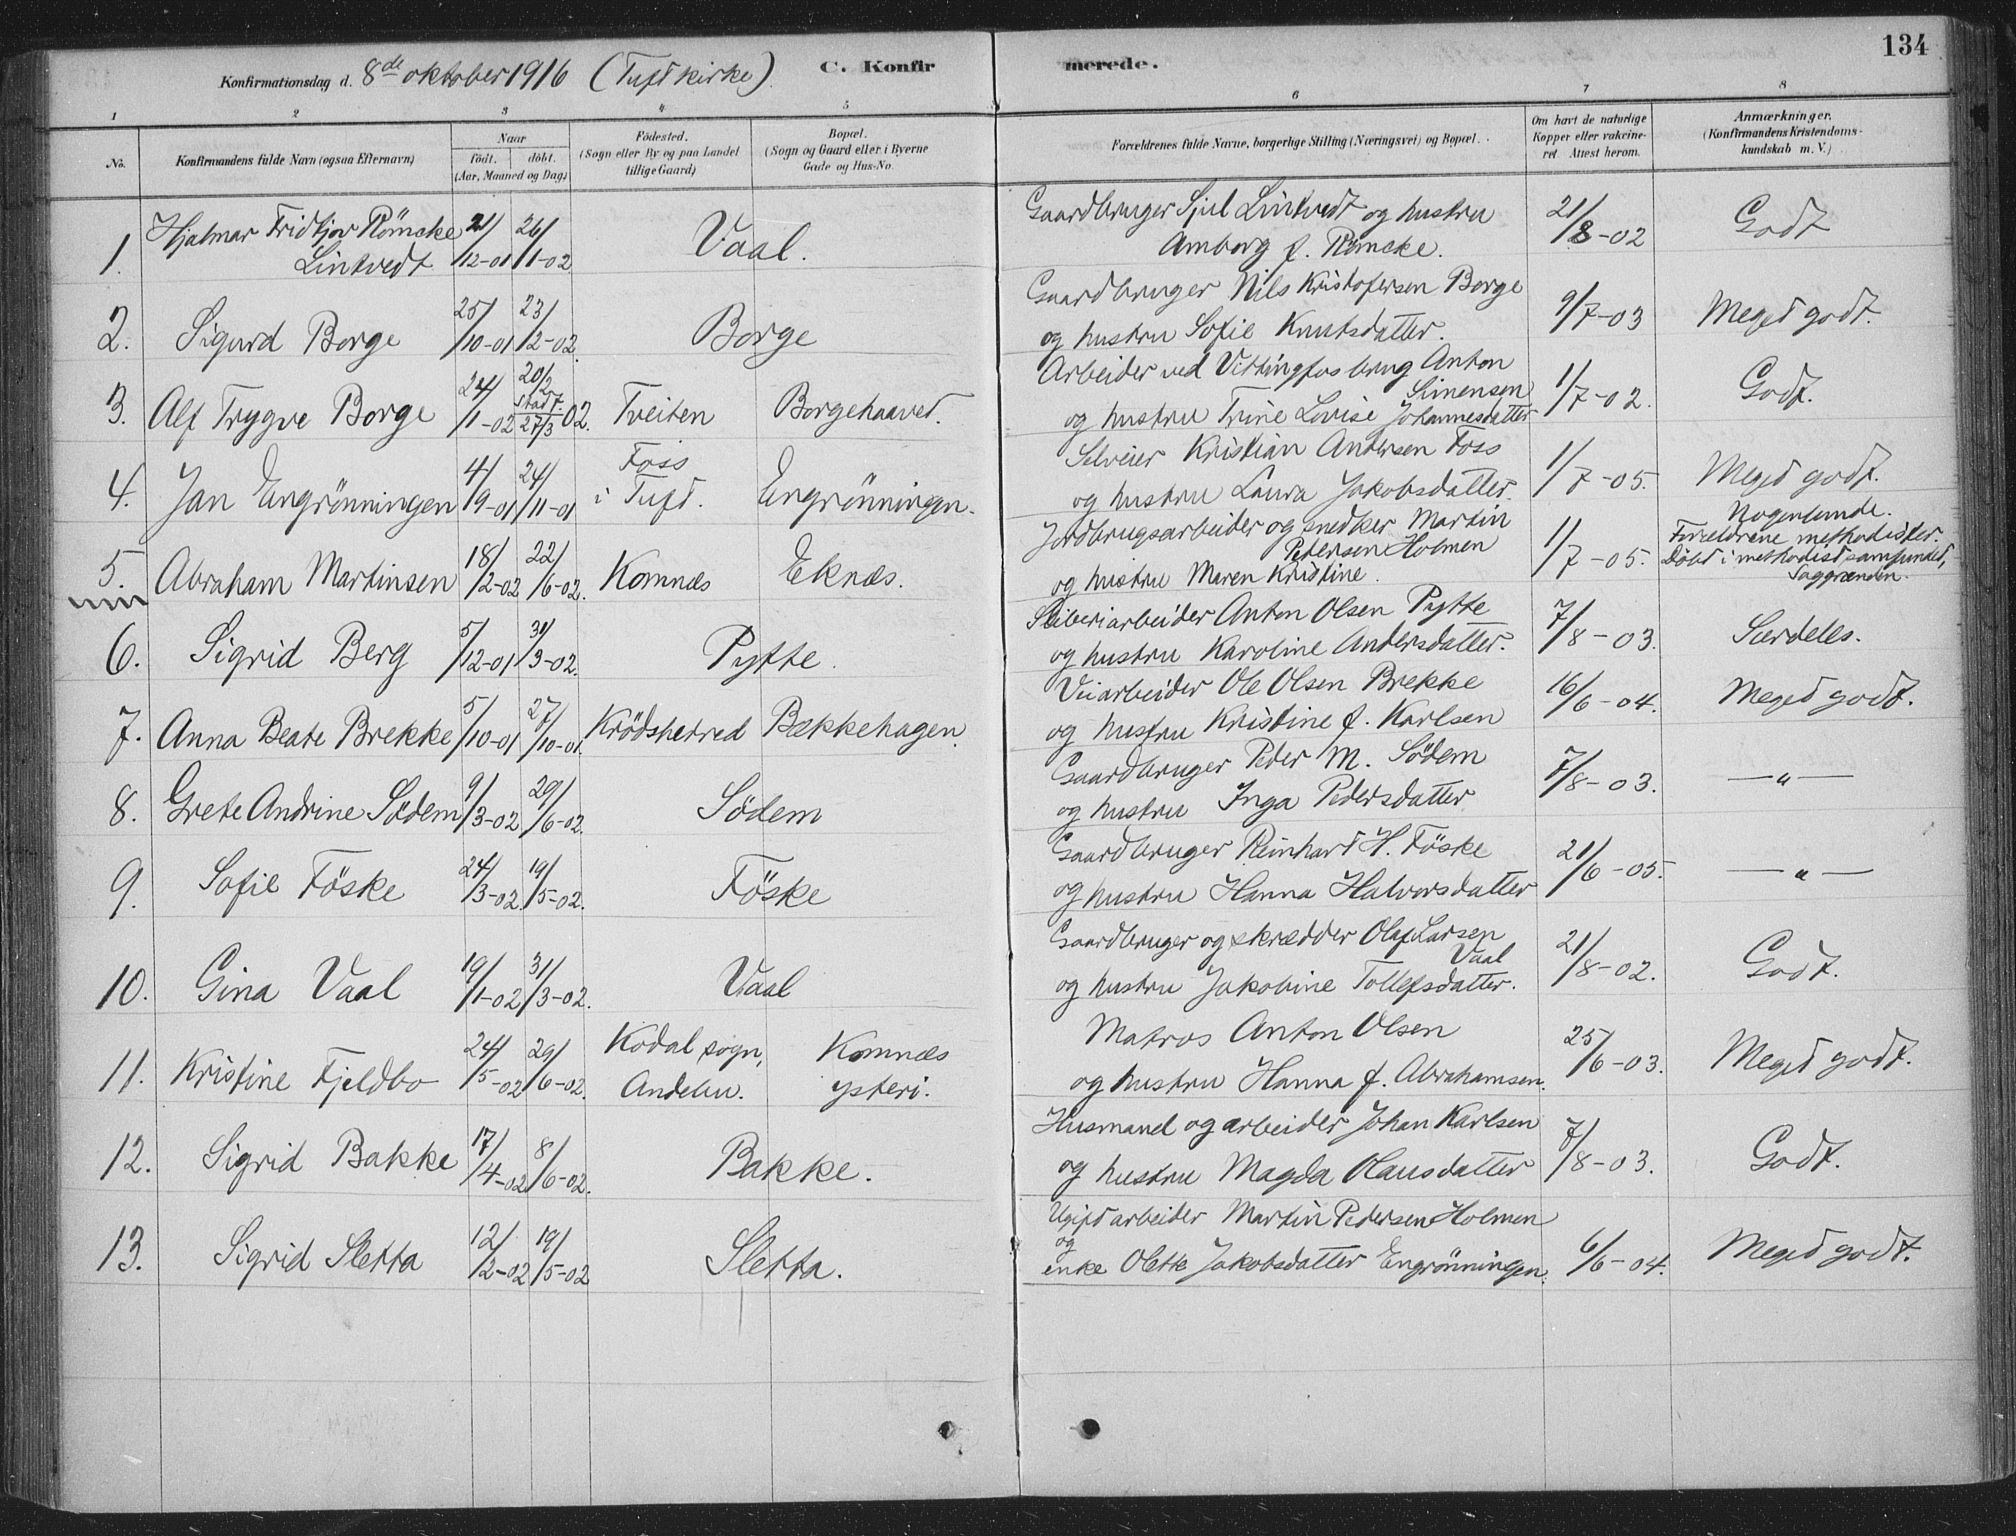 134
Konfirmationsdag d. 8de oktober 1916 (Tuft kirke). C. Konfirmerede.
1 2 3 4 5 6 7 8
No. Konfirmandens fulde Navn (ogsaa Efternavn) Naar født. døbt. (Aar, Maaned og Dag) Fødested. (Sogn eller By og paa Landet tillige Gaard) Bopæl. (Sogn og Gaard eller i Byerne Gade og Hus-No. Forældrenes fulde Navne, borgerlige Stilling (Næringsvei) og Bopæl. Om havt de naturlige Kopper eller vakcineret Attest herom. Anmærkninger. (Konfirmandens Kristendomskundskab m. V.)
1. Hjalmar Fridtjov Römcke Lintvedt 21/12-01 26/1-02 Vaal. Gaardbruger Sjul Lintvedt og hustru Amborg f. Römcke. 21/8-02 Godt
2. Sigurd Borge 25/10-01 23/2-02. Borge Gaardbruger Nils Kristofersen Borge og hustru Sofie Knutsdatter. 9/7-03 Meget godt.
3. Alf Trygve Borge 24/1-02 20/2 stadf. 27/3 02. Tveiten Borgehaavet. Arbeider ved Vittingfos brug Anton Simensen og hustru Trine Lovise Johannesdatter 1/7-02. Godt.
4. Jan Engrönningen 4/19-01 24/11-01 Foss i Tuft. Engrönningen. Selveier Kristian Andersen Foss og hustru Laura Jakobsdatter. 1/7-05. Meget godt.
5. Abraham Martinsen 18/2-02 22/6-02. Komnæs Eknæs. Jordbrugsarbeider og snedker Martin Pedersen Holmen og hustru Maren Kristine. 1/7-05. Nogenlunde. Forældrene methodister. Döbt i methodistsamfundet,
6. Sigrid Berg 5/12-01 31/3-02. Pytte. Sliberiarbeider Anton Olsen Pytte og hustru Karoline Andersdatter. 7/8-03. Særdeles.
7. Anna Beate Brekke 5/10-01 27/10-01. Krödsherred Bækkehagen. Veiarbeider Ole Olsen Brekke og hustru Kristine f. Karlsen 16/6-04. Meget godt.
8. Grete Andrine Södem 9/3-02 29/6-02. Södem Gaardbruger Peder M. Södem og hustru Inga Pedersdatter 7/8-03. — " —
9. Sofie Föske 24/3-02. 19/5-02. Föske Gaardbruger Reinhart H. Föske og hustru Hanna Halvorsdatter 21/6-05. — " —
10. Gina Vaal 19/1-02 31/3-02. Vaal Gaardbruger og skrædder Olaf Larsen Vaal og hustru Jakobine Tollefsdatter. 21/8-02. Godt.
11. Kristine Fjeldbo 24/5-02 29/6-02. Kodal sogn, Andebu. Komnæs ysteri. Matros Anton Olsen og hustru Hanna f. Abrahamsen. 25/6-03. Meget godt.
12. Sigrid Bakke 17/4-02 8/6-02. Bakke. Husmand og arbeider Johan Karlsen og hustru Magda Olausdatter 7/8-03. Godt.
13. Sigrid Sletta 12/2-02 19/5-02 Sletta. Ugift arbeider Martin Pedersen Holmen og enke Olette Jakobsdatter Engrönningen. 6/6-04. Meget godt.